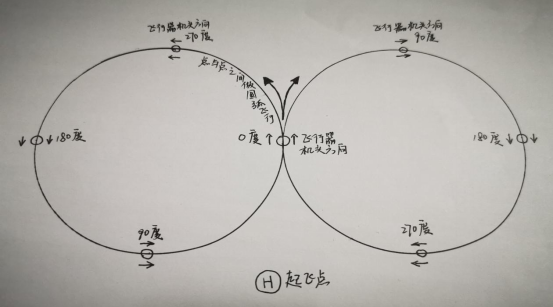 飞行器机头方向
270度
飞行器机头方向
90度
点与点之间做圆弧飞行
180度
0度
飞行器
机头方向
180度
90度
270度
H 起飞点